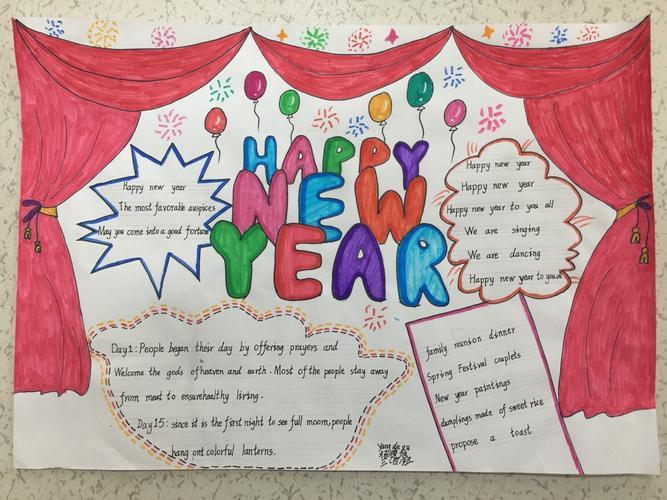 HAPPY
NEW
YEAR
Happy new year
The most favorable auspices
May you come into a good fortune
Happy new year
Happy new year
Happy new year to you all
We are singing
We are dancing
Happy new year to you all
Day1: People began their day by offering prayers and
Welcome the gods of heaven and earth. Most of the people stay away
from meat to ensurehealthy living.
Day 15: since it is the first night to see full moorn, people
hang ont colorful lanterns.
family reunion dinner
Spring Festival couplets
New year paintings
dumplings made of sweet rice
propose a toast
Yang